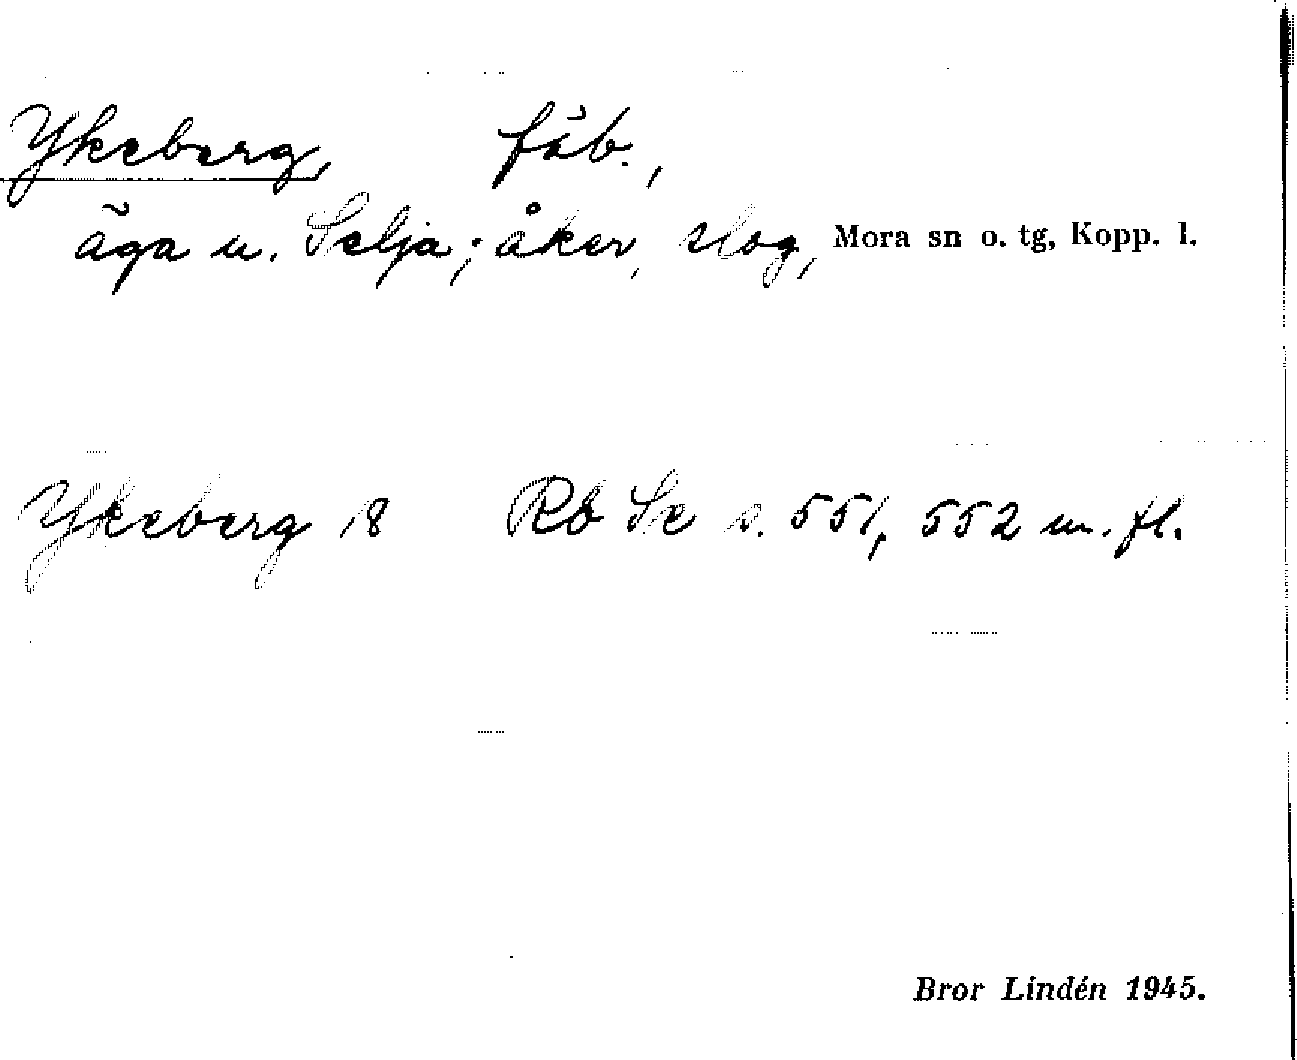 Ykeberg, fäb.,
äga u. Selja; åker, slog, Mora sn o. tg, Kopp. l.
Ykeberg 18 Rb Se s. 551, 552 m. fl.
Bror Lindén 1945.